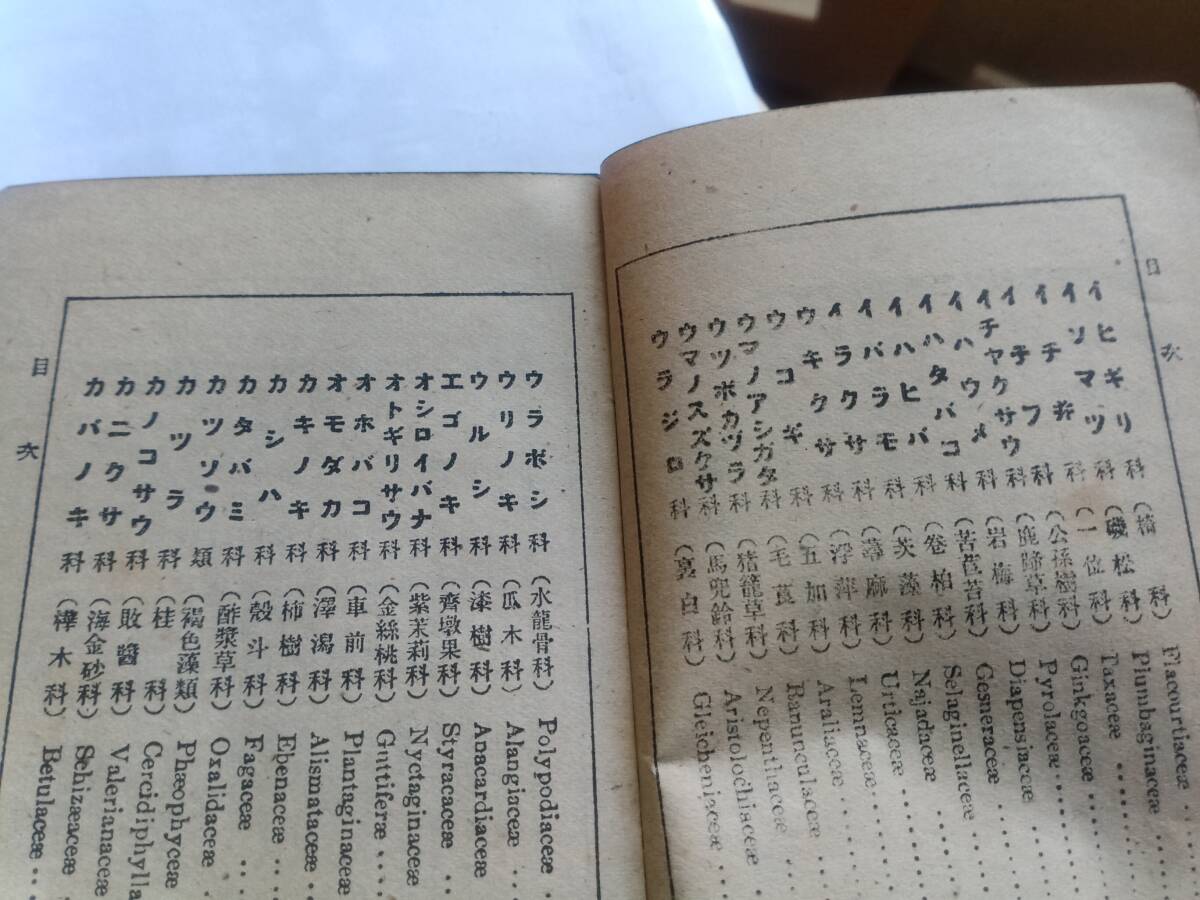 目次
イヒギリ科(椅科) Flacourtiaceæ
イソマツ科(磯松科) Plumbaginaceæ
イチ井科(一位科) Taxaceæ
イチフ科(公孫樹科) Ginkgoaceæ
イチヤクサウ科(鹿蹄草科) Pyrolaceæ
イハウメ科(岩梅科) Diapensiaceæ
イハタバコ科(苦苣苔科) Gesneraceæ
イハヒバ科(卷柏科) Selaginellaceæ
イバラモ科(茨藻科) Najadaceæ
イラクサ科(蕁麻科) Urticaceæ
ウキクサ科(浮萍科) Lemnaceæ
ウコギ科(五加科) Araliaceæ
ウマノアシガタ科(毛莨科) Ranunculaceæ
ウツボカヅラ科(猪籠草科) Nepenthaceæ
ウマノスズクサ科(馬兜鈴科) Aristolochiaceæ
ウラジロ科(裏白科) Gleicheniaceæ
目次
ウラボシ科(水龍骨科) Polypodiaceæ
ウリノキ科(瓜木科) Alangiaceæ
ウルシ科(漆樹科) Anacardiaceæ
エゴノキ科(齊墩果科) Styracaceæ
オシロイバナ科(紫茉莉科) Nyctaginaceæ
オトギリサウ科(金絲桃科) Guttiferæ
オホバコ科(車前科) Plantaginaceæ
オモダカ科(澤瀉科) Alismataceæ
カキノキ科(柿樹科) Ebenaceæ
カシハ科(殼斗科) Fagaceæ
カタバミ科(酢漿草科) Oxalidaceæ
カツソウ類(褐色藻類) Phæophyceæ
カツラ科(桂科) Cercidiphylla
カノコサウ科(敗醬科) Valerianaceæ
カニクサ科(海金砂科) Schizæaceæ
カバノキ科(樺木科) Betulaceæ